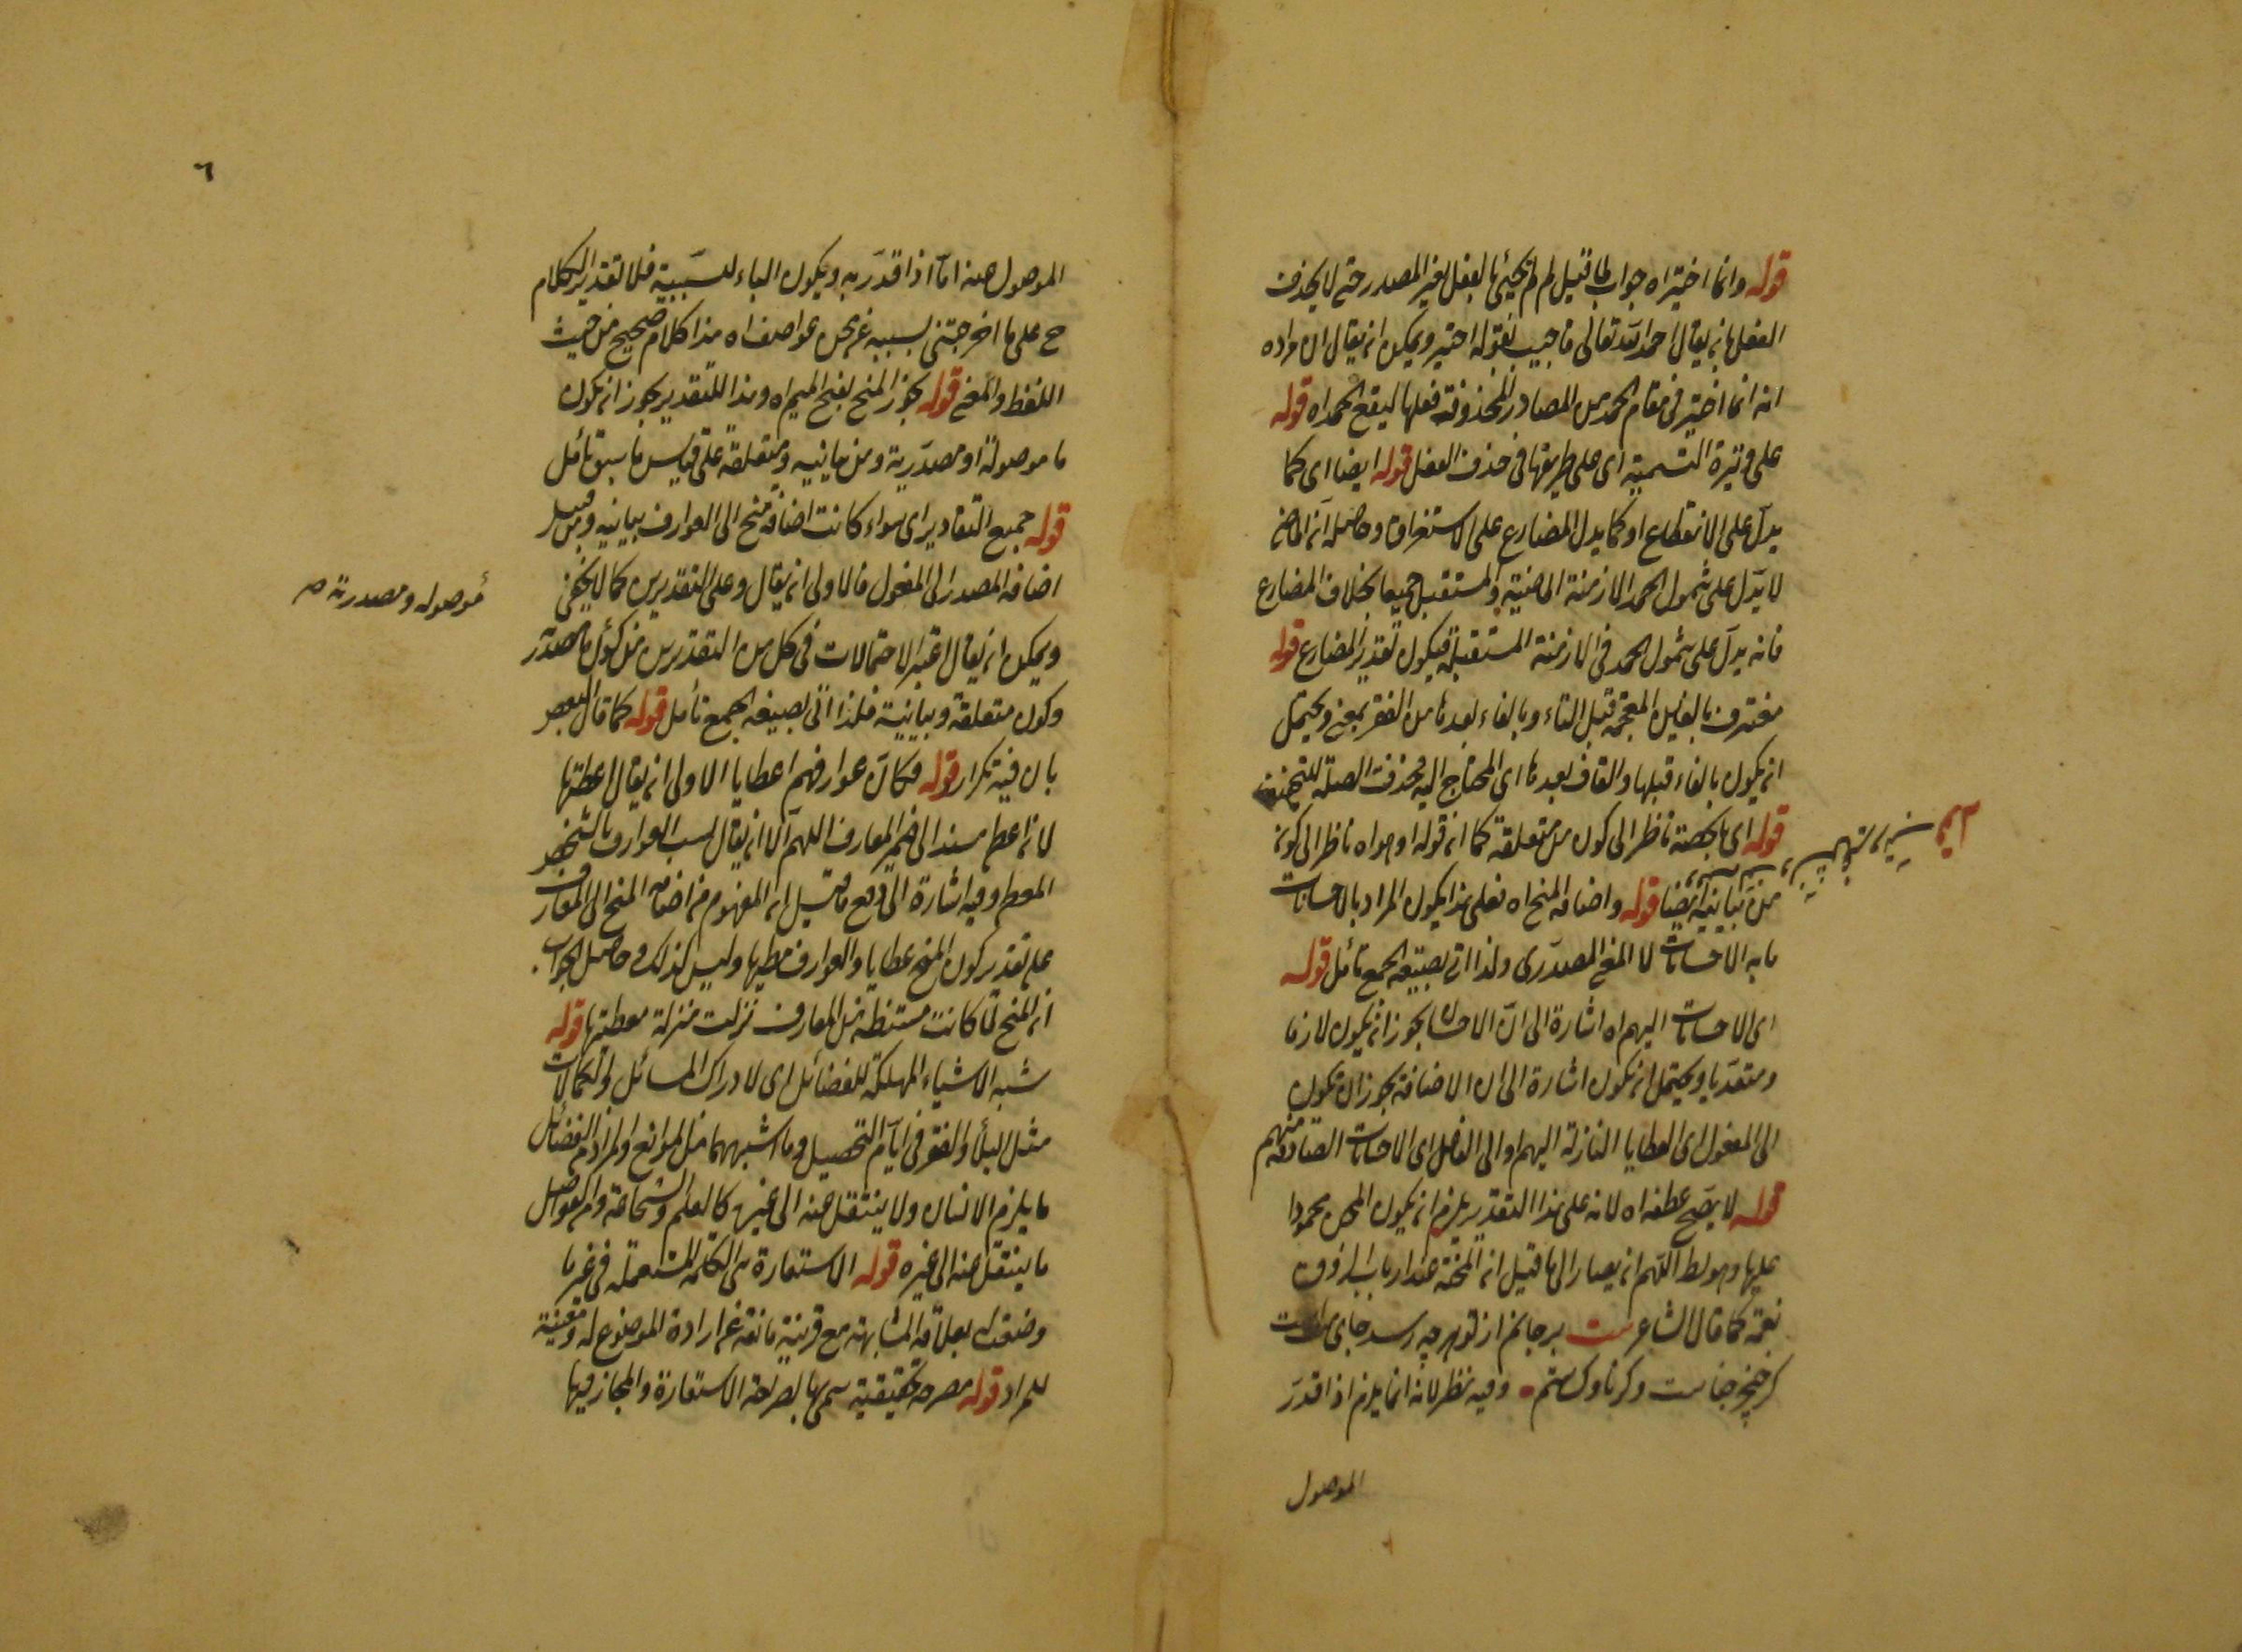 قوله وانما اختير اه جواب لما قيل لم لم يجئ بالفعل بغير المصدر حتى لا يحذف
الفعل بان يقال احمد الله تعالى فاجيب بقوله اختير ويمكن ان يقال ان مراده
انه انما اختير فى مقام الحمد من المصادر المحذوفة فعلها ليقع الحمد اه قوله
على وتيرة التسمية اى على طريقها فى حذف الفعل قوله ايضا اى كما
يدل على الانقطاع او كما يدل المضارع على الاستغراق وحاصله ان الماضى
لا يدل على شمول الحمد الازمنة الماضية والمستقبل جميعا بخلاف المضارع
فانه يدل على شمول الحمد فى الازمنة المستقبلة فيكون تقدير المضارع قوله
مغترف بالغين المعجمة قبل التاء وبالفاء بعدها من الفقر بمعنى ويحتمل
ان يكون بالفاء قبلها والقاف بعدها اى المحتاج اليه فحذفت الصلة للتخفيف
قوله اى ناظر الى كون من متعلقة كما ان قوله او هو اه ناظر الى كونه
من بيانية ايضا قوله واضافة المنح اه فعلى هذا يكون المراد بالاحسانات
ما به الاحسانات لا المعنى المصدرى ولذا اتى بصيغة الجمع تأمل قوله
اى الاحسانات اليهم اه اشارة الى ان الاحسان يجوز ان يكون لازما
ومتعديا ويحتمل ان يكون اشارة الى ان الاضافة يجوز ان يكون
الى المفعول اى العطايا النازلة اليهم او الى الفاعل اى الاحسانات الصادقة منهم
قوله لا يصح عطفه اه لانه على هذا التقدير يلزم ان يكون المحن محمودا
عليها وهو بط اللهم ان يصار الى ما قيل ان المحنة عند ارباب الذوق
نعمة كما قال الشاعر بيت بر جانم از تو هر چه رسد جاى منت است
كر خنجر جفاست وكر ناوك ستم وفيه نظر لانه انما يلزم اذا قدر
الموصول
٦
الموصول هنه اما اذا قدر به ويكون الباء لسببية فلا لتقدير الكلام
ح على ما اخرجتنى بسببه عن محن عواصف اه هذا كلام صحيح من حيث
اللفظ والمعنى قوله يجوز المنح بفتح الميم اه وهذا التقدير يجوز ان يكون
ما موصولة او مصدرية ومن بيانيه ومتعلقة على قياس ما سبق تأمل
قوله جميع التقادير اى سواء كانت اضافة منح الى العوارف بيانيه ومن قبيل
اضافة المصدر الى المفعول فالاولى ان يقال وعلى التقديرين كما لا يخفى
ويمكن ان يقال اعتبر الاحتمالات فى كل من التقديرين من كون ما مصدر
موصوله ومصدرية صح
وكون متعلقة وبيانية فلذا اتى بصيغة الجمع تأمل قوله كما قال البعض
بان فيه تكرار قوله فكان عوارفهم اعطايا الاولى ان يقال اعطتها
لانه اعطى مسند الى ضمير المعارف اللهم الا ان يقال لسب العوارف بالشخص
المعطى وفيه اشارة الى دفع ما قيل ان المفهوم من اضافة المنح الى المعارف
على تقدير كون المنح عطايا والعوارف معطيها وليس كذلك وحاصل الجواب
ان المنح لما كانت مستنظم من المعارف نزلت منزلة معطيتها قوله
شبه الاشياء المهلكة للفضائل اى لادراك المسائل والكمالات
مثل البلاء والفقر فى ايام التحصيل وما اشبههما من الموانع والمراد من الفضائل
ما يلزم الانسان ولا ينتقل منه الى غيره كالعلم والشجاعة ومن الفواضل
ما ينتقل منه الى غيره قوله الاستعارة هى الكلمة المستعملة فى غير ما
وضعت له بعلاقة المشابهة مع قرينة مانعة عن ارادة الموضوع له ومعينة
للمراد قوله مصرحة تحقيقية سمى بها لصراحة الاستعارة والمجاز فيها